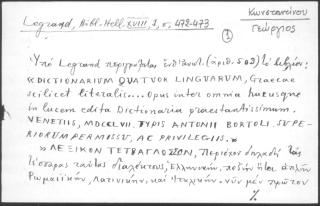 Legrand, Bibl. Hell. XVIII, 1, σ. 472-473
Κωνσταντίνου
Γεώργιος
1
Ὑπὸ Legrand περιγράφεται ἐνθ' ἀνωτ. (ἀριθ. 502) τὸ βιβλίον:
«DICTIONARIUM QUATUOR LINGUARUM, Graecae
scilicet literalis.... Opus inter omnia hucusque
in lucem edita Dictionaria praestantissimum.
VENETIIS, MDCCLVII. TYPIS ANTONII BORTOLI. SUPE-
RIORUM PERMISSU, AC PRIVILEGIIS.»
»ΛΕΞΙΚΟΝ ΤΕΤΡΑΓΛΩΣΣΟΝ, Περιέχον δηλαδὴ τὰς
τέσσαρας ταύτας διαλέκτους, Ἑλληνικήν, πεζὴν ἤτοι ἁπλῆν
Ρωμαϊκήν, Λατινικήν, καὶ Ἰταλικήν. νῦν μὲν πρῶτον
%